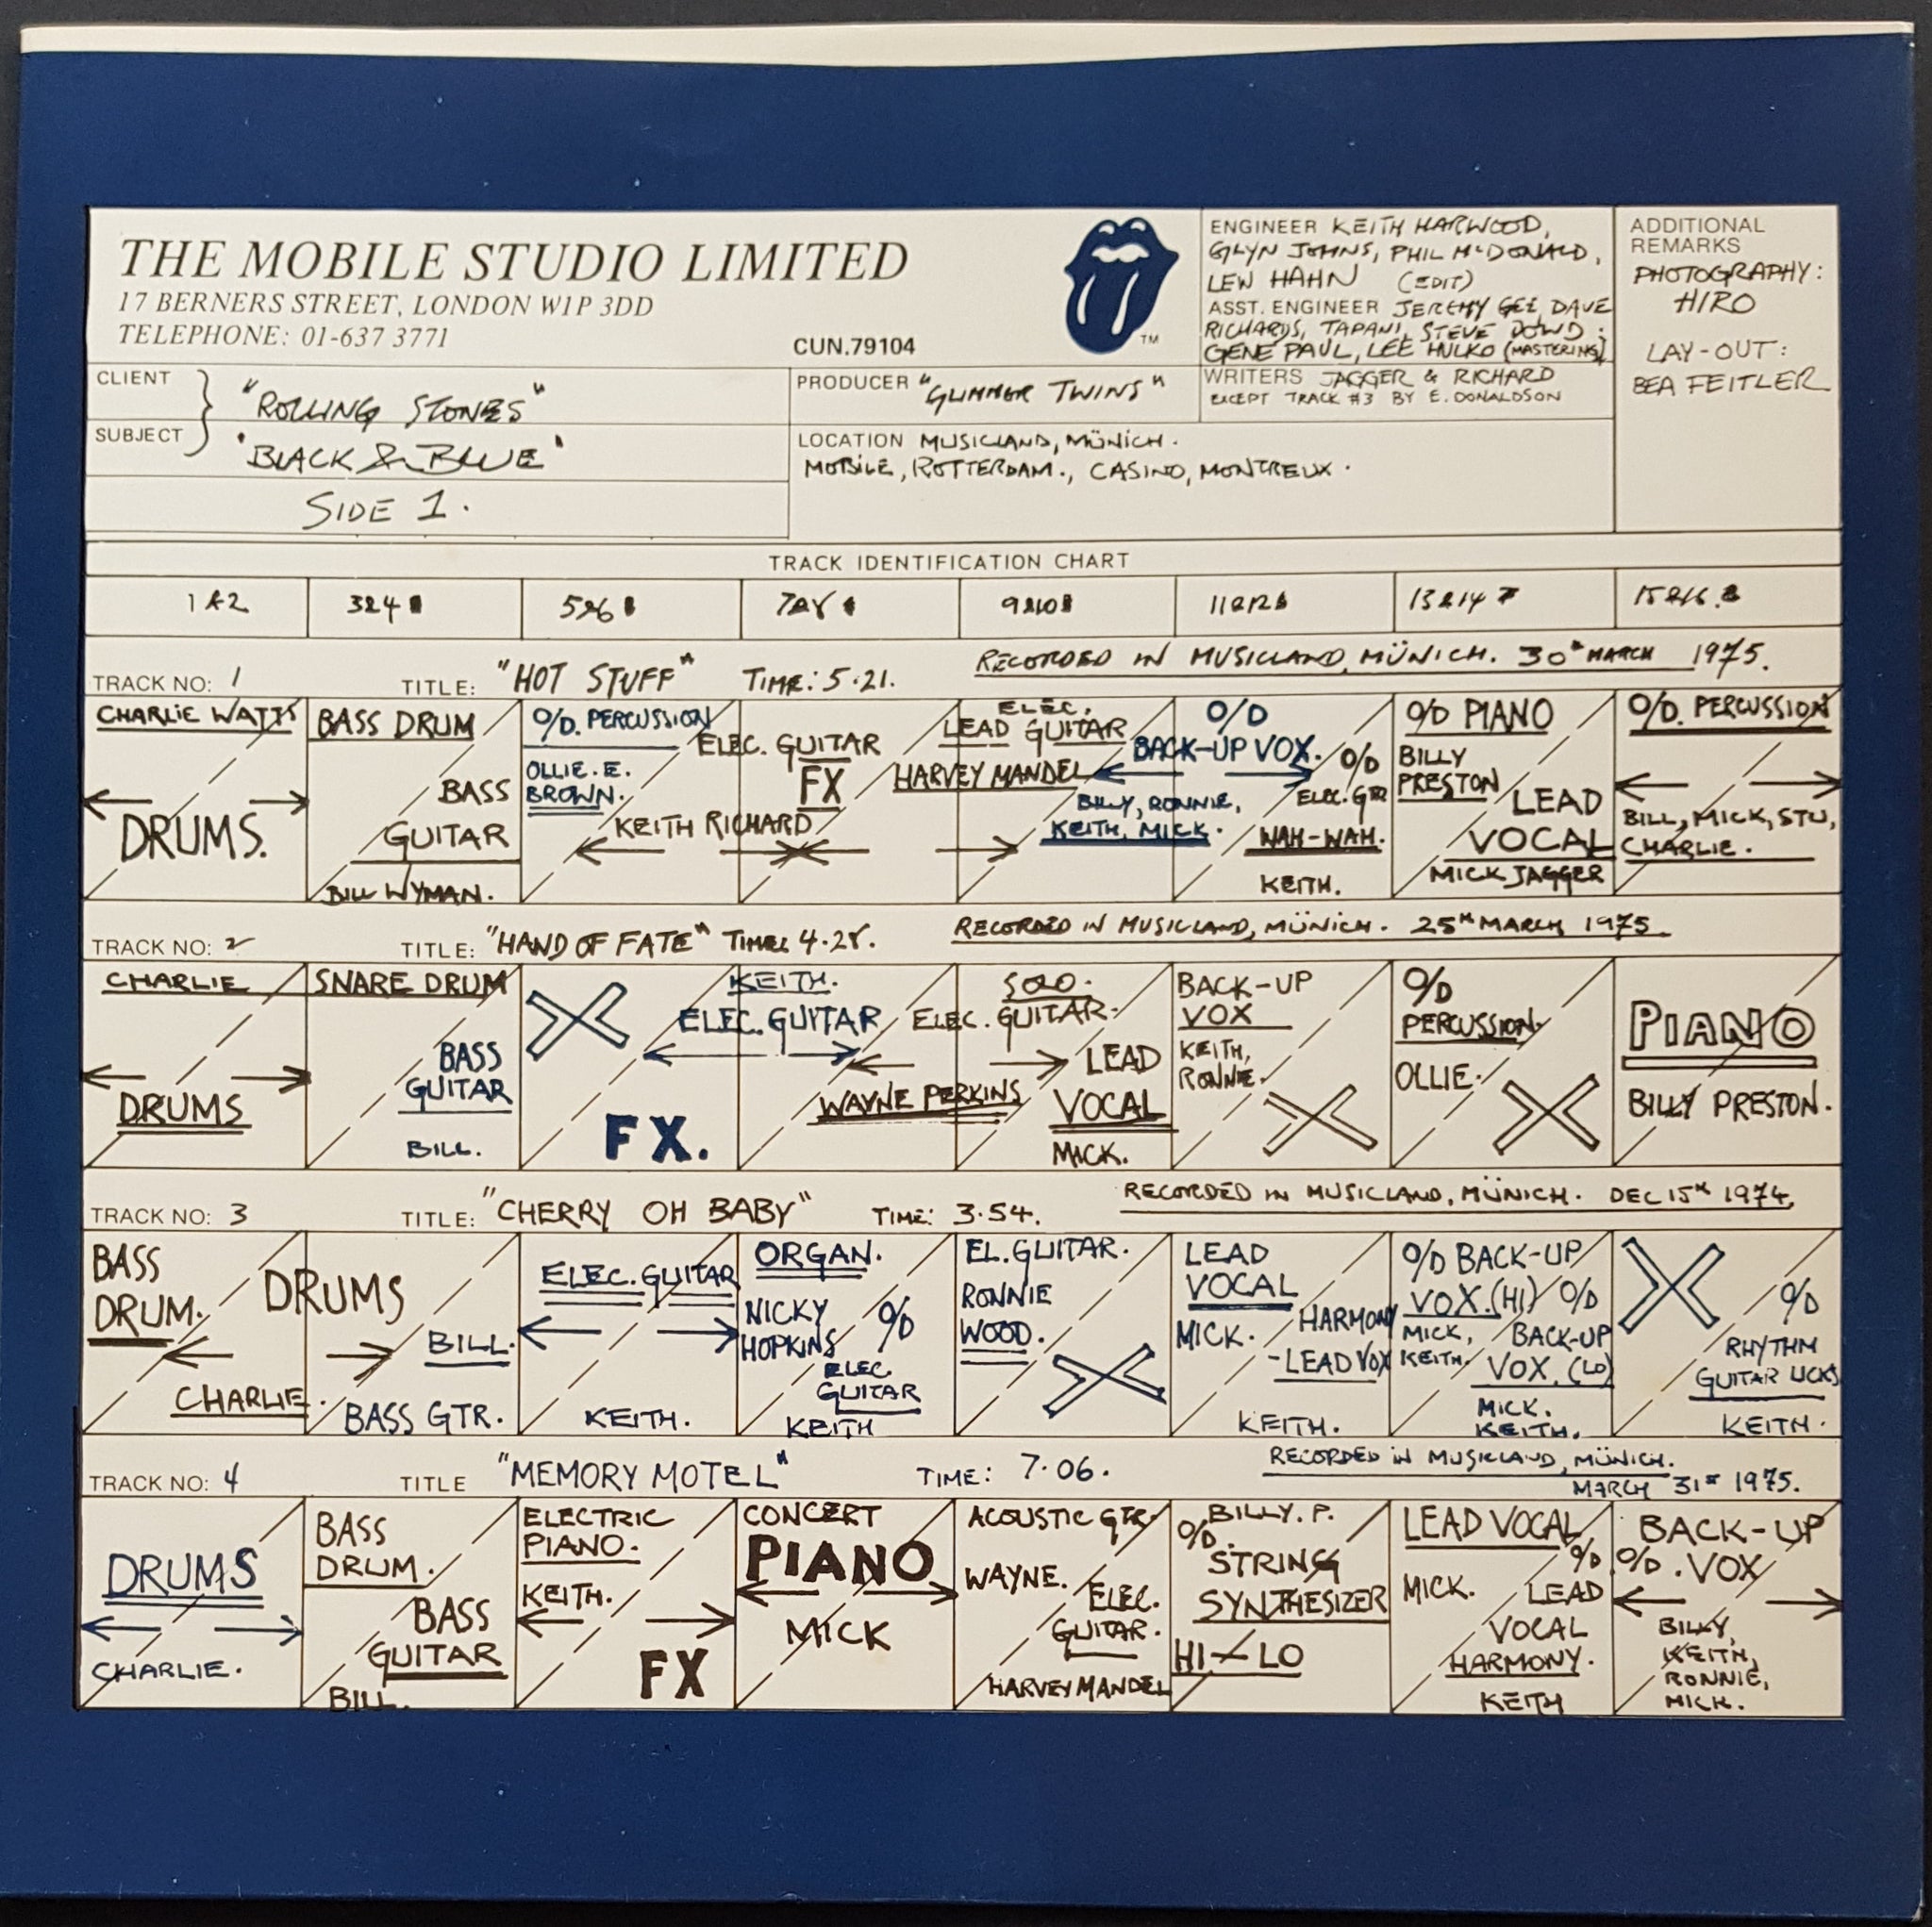 THE MOBILE STUDIO LIMITED
17 BERNERS STREET, LONDON W1P 3DD
TELEPHONE: 01-637 3771
CUN.79104
TM
ENGINEER KEITH HARWOOD,
GLYN JOHNS, PHIL McDONALD,
LEW HAHN (EDIT)
ASST. ENGINEER JEREMY GEE, DAVE
RICHARDS, TAPANI, STEVE DOWD;
GENE PAUL, LEE HULKO (MASTERING)
ADDITIONAL
REMARKS
PHOTOGRAPHY:
HIRO
LAY-OUT:
BEA FEITLER
CLIENT
"ROLLING STONES"
SUBJECT
'BLACK & BLUE'
SIDE 1.
PRODUCER "GLIMMER TWINS"
WRITERS JAGGER & RICHARD
EXCEPT TRACK #3 BY E. DONALDSON
LOCATION MUSICLAND, MÜNICH.
MOBILE, ROTTERDAM., CASINO, MONTREUX.
TRACK IDENTIFICATION CHART
1 & 2
3 & 4
5 & 6
7 & 8
9 & 10
11 & 12
13 & 14
15 & 16
TRACK NO: 1 TITLE: "HOT STUFF" TIME: 5.21. RECORDED IN MUSICLAND, MÜNICH. 30th MARCH 1975.
CHARLIE WATTS
DRUMS.
BASS DRUM
BASS
GUITAR
BILL WYMAN.
O/D. PERCUSSION
OLLIE. E.
BROWN.
ELEC. GUITAR
FX
KEITH RICHARD
ELEC.
LEAD GUITAR
HARVEY MANDEL
O/D
BACK-UP VOX.
BILLY, RONNIE,
KEITH, MICK.
O/D
ELEC. GTR
WAH-WAH.
KEITH.
O/D PIANO
BILLY
PRESTON
LEAD
VOCAL
MICK JAGGER
O/D. PERCUSSION
BILL, MICK, STU,
CHARLIE.
TRACK NO: 2 TITLE: "HAND OF FATE" TIME: 4.28. RECORDED IN MUSICLAND, MÜNICH. 25th MARCH 1975.
CHARLIE
DRUMS
SNARE DRUM
BASS
GUITAR
BILL.
FX.
KEITH.
ELEC. GUITAR
SOLO.
ELEC. GUITAR.
WAYNE PERKINS
LEAD
VOCAL
MICK.
BACK-UP
VOX
KEITH,
RONNIE.
O/D
PERCUSSION.
OLLIE.
PIANO
BILLY PRESTON.
TRACK NO: 3 TITLE: "CHERRY OH BABY" TIME: 3.54. RECORDED IN MUSICLAND, MÜNICH. DEC 15th 1974.
BASS
DRUM.
DRUMS
CHARLIE.
BILL.
BASS GTR.
ELEC. GUITAR
KEITH.
ORGAN.
NICKY
HOPKINS
O/D
ELEC.
GUITAR
KEITH
EL. GUITAR.
RONNIE
WOOD.
LEAD
VOCAL
MICK.
HARMONY
-LEAD VOX
KEITH.
O/D BACK-UP
VOX. (HI)
MICK,
KEITH.
O/D
BACK-UP
VOX. (LO)
MICK.
KEITH.
O/D
RHYTHM
GUITAR LICKS
KEITH.
TRACK NO: 4 TITLE "MEMORY MOTEL" TIME: 7.06. RECORDED IN MUSICLAND, MÜNICH.
MARCH 31st 1975.
DRUMS
CHARLIE.
BASS
DRUM.
BASS
GUITAR
BILL.
ELECTRIC
PIANO.
KEITH.
FX
CONCERT
PIANO
MICK
ACOUSTIC GTR.
WAYNE.
ELEC.
GUITAR.
HARVEY MANDEL
BILLY. P.
O/D.
STRING
SYNTHESIZER
HI LO
LEAD VOCAL
MICK.
O/D
LEAD
VOCAL
HARMONY.
KEITH
BACK-UP
O/D. VOX
BILLY,
KEITH,
RONNIE,
MICK.